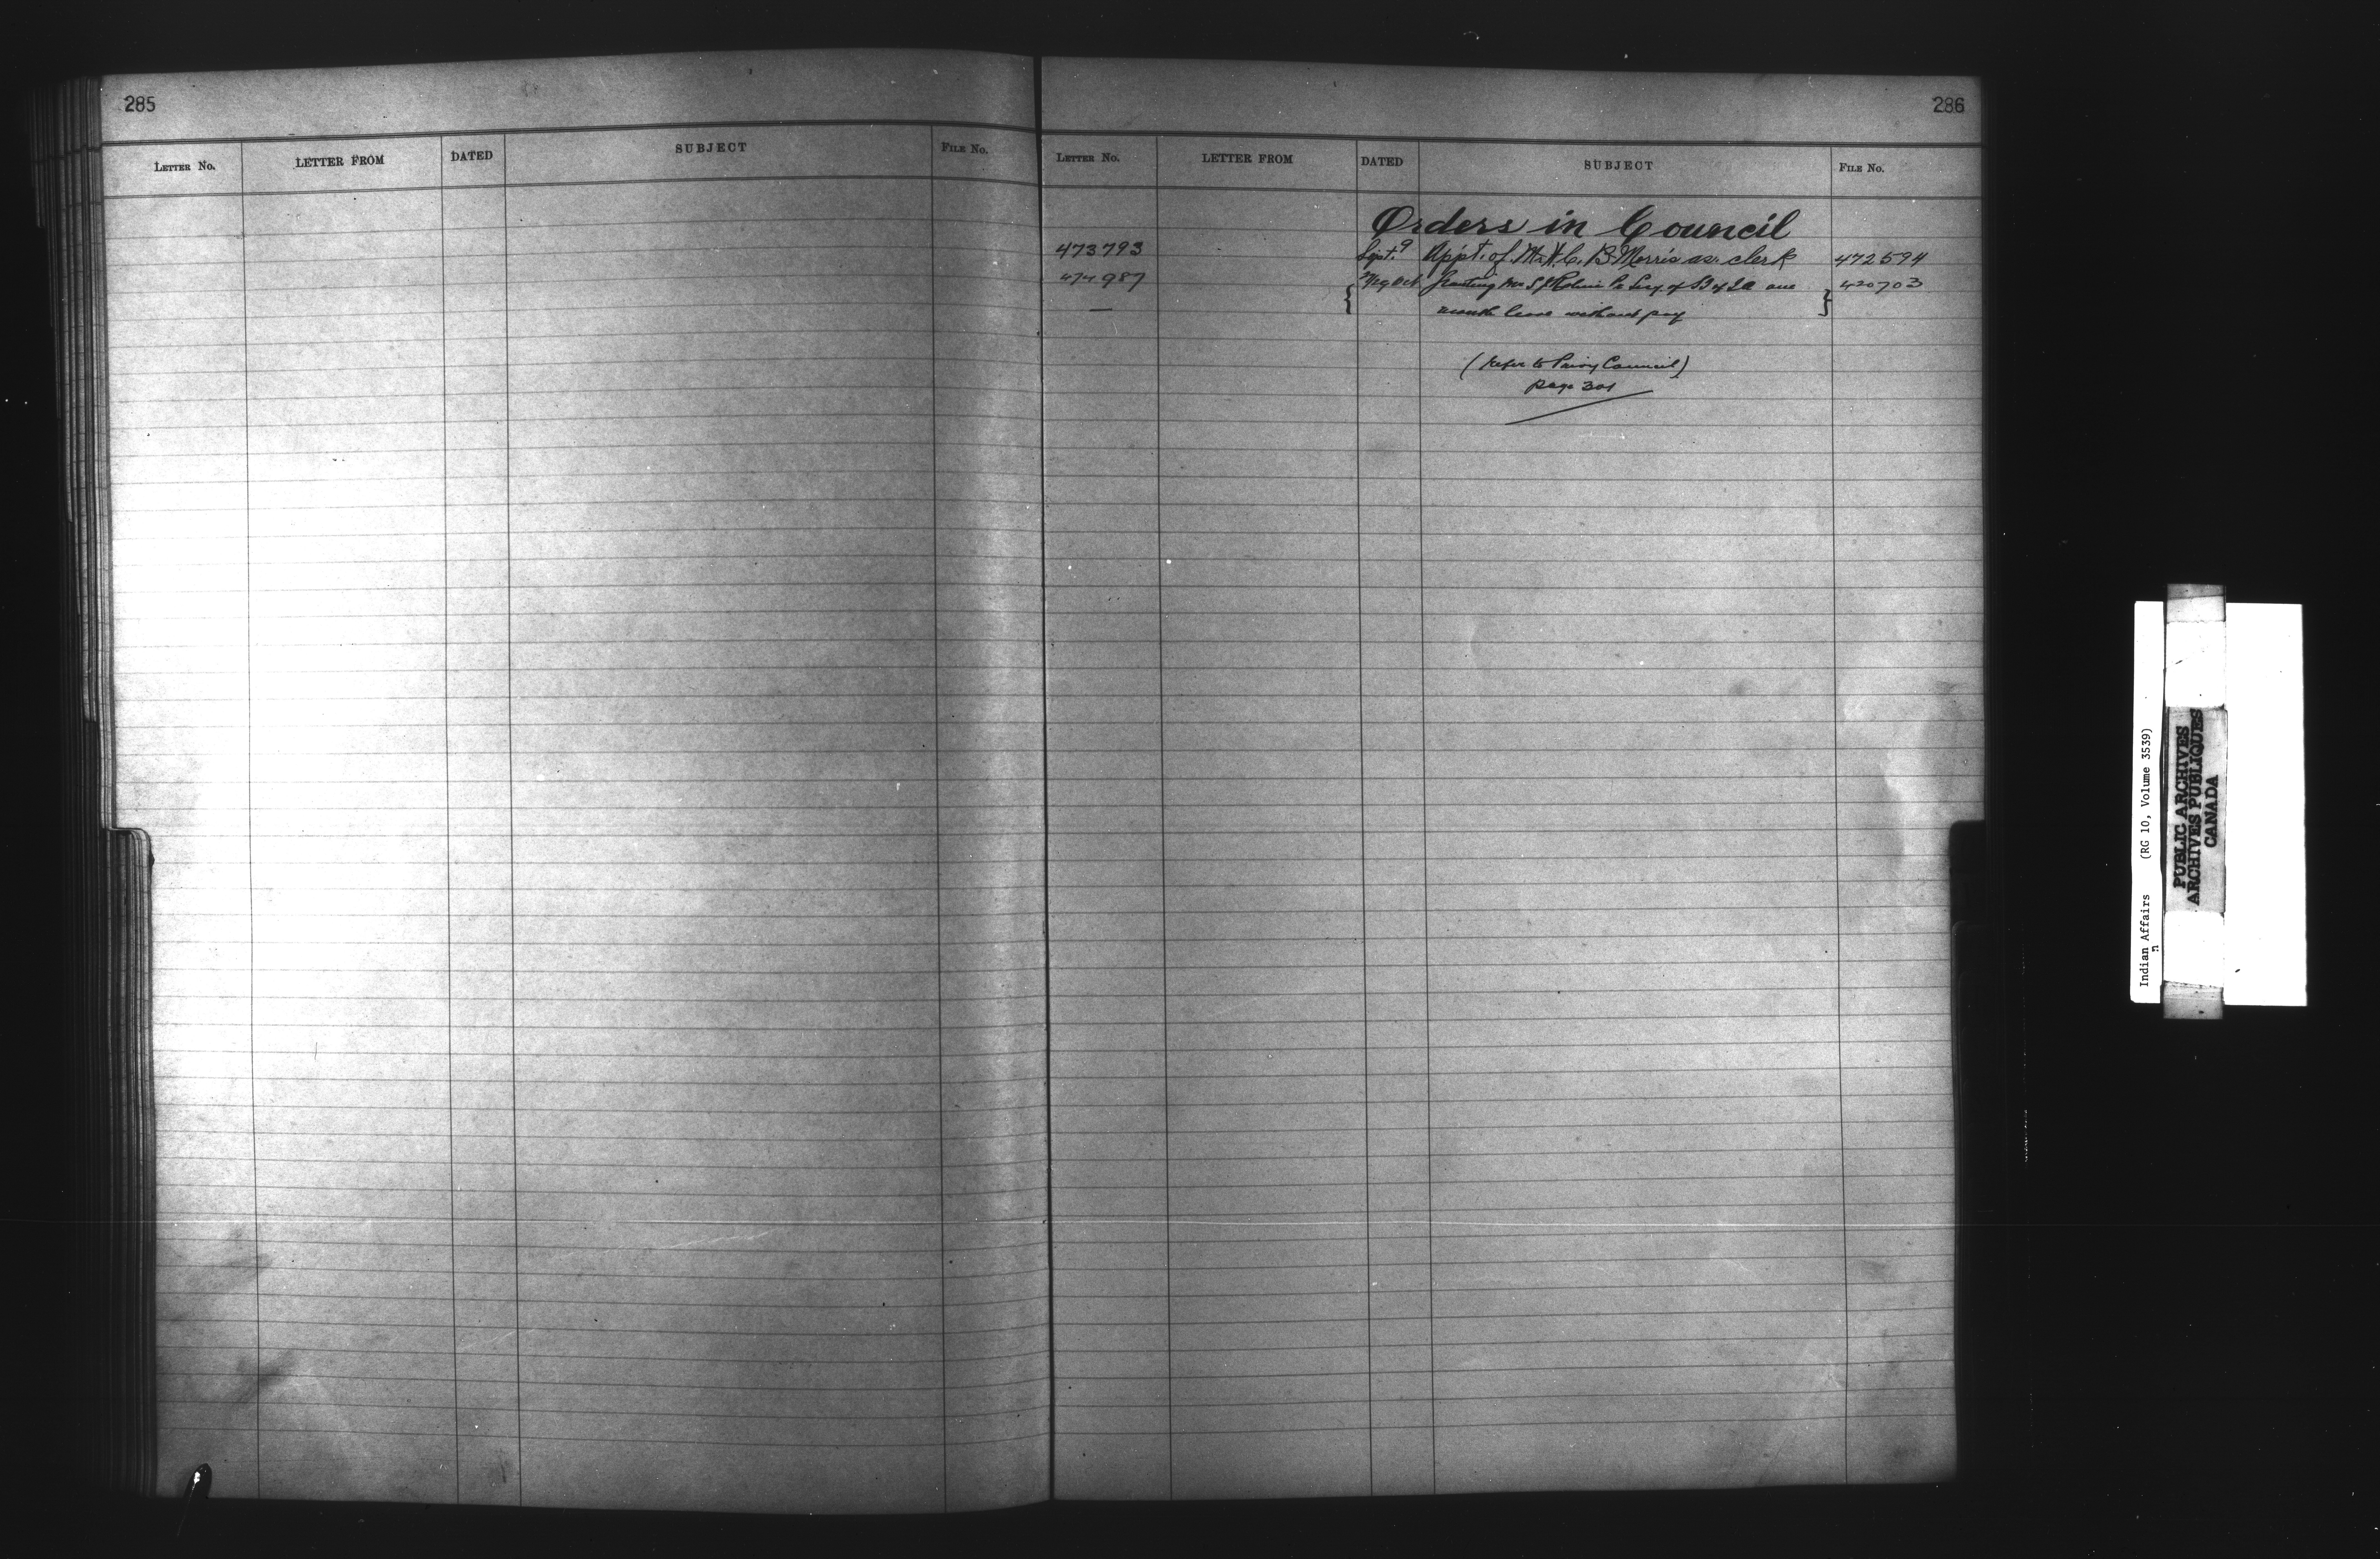 285
LETTER No. LETTER FROM DATED SUBJECT FILE No.
286
LETTER No. LETTER FROM DATED SUBJECT FILE No.
Orders in Council
473793 Sept. 9 Appt. of Mr. H. C. B. Morris as clerk 472594
474987 Oct Granting Mr S J of one 420703
— month leave without pay
(Refer to Privy Council)
page 301
Indian Affairs (RG 10, Volume 3539)
PUBLIC ARCHIVES
ARCHIVES PUBLIQUES
CANADA